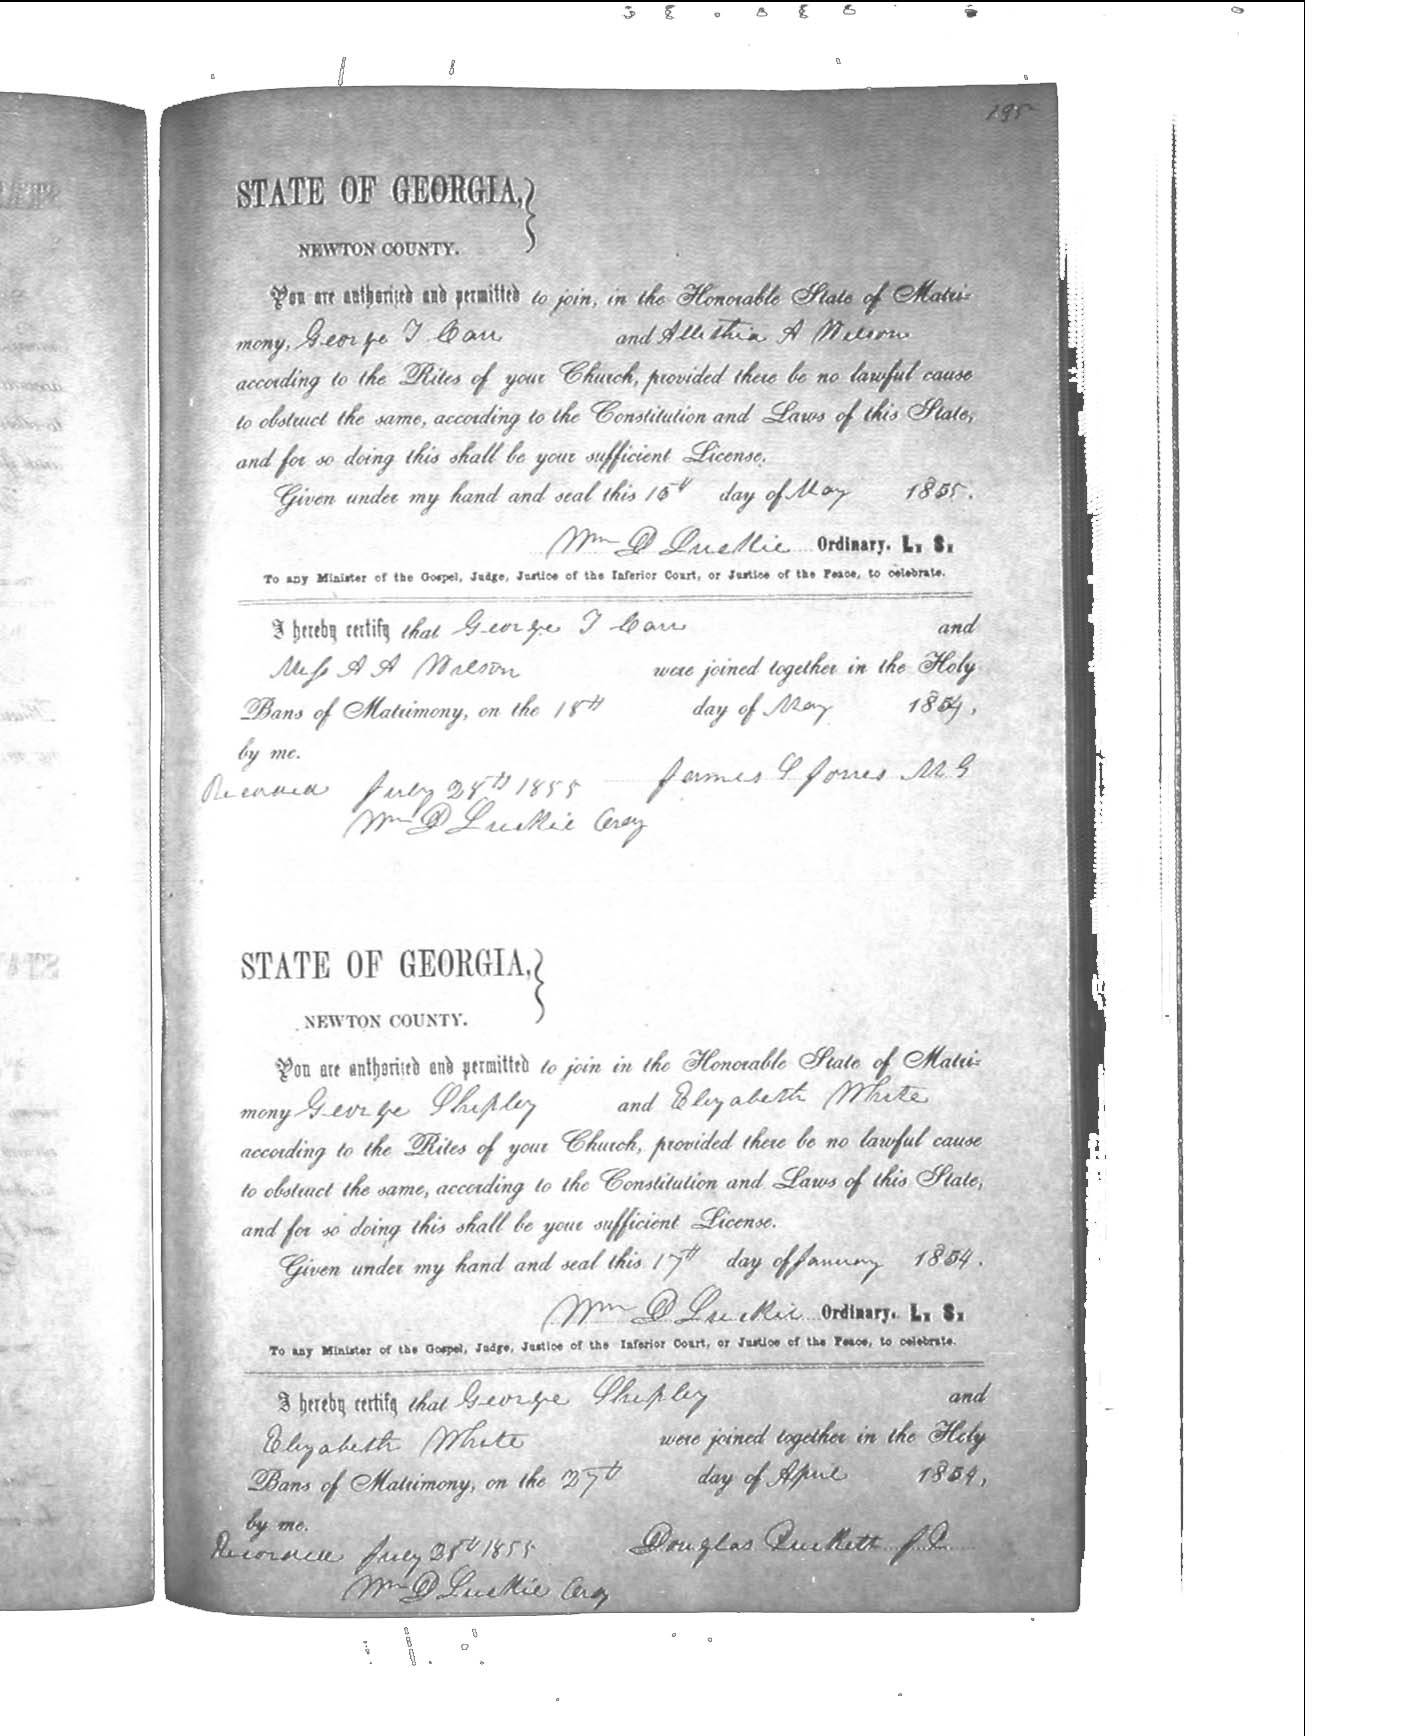 195
STATE OF GEORGIA,
NEWTON COUNTY.
You are authorized and permitted to join, in the Honorable State of Matri-
mony, George T Carr and Allethia A Wilson
according to the Rites of your Church, provided there be no lawful cause
to obstruct the same, according to the Constitution and Laws of this State,
and for so doing this shall be your sufficient License.
Given under my hand and seal this 15th day of May 1855.
Wm D Luckie Ordinary. L. S.
To any Minister of the Gospel, Judge, Justice of the Inferior Court, or Justice of the Peace, to celebrate.
I hereby certify that George T Carr and
Miss A A Wilson were joined together in the Holy
Bans of Matrimony, on the 18th day of May 1854,
by me.
Recorded July 28th 1855 James L Jones M G
Wm D Luckie Ordy
STATE OF GEORGIA,
NEWTON COUNTY.
You are authorized and permitted to join in the Honorable State of Matri-
mony George Shipley and Elizabeth White
according to the Rites of your Church, provided there be no lawful cause
to obstruct the same, according to the Constitution and Laws of this State,
and for so doing this shall be your sufficient License.
Given under my hand and seal this 17th day of January 1854.
Wm D Luckie Ordinary. L. S.
To any Minister of the Gospel, Judge, Justice of the Inferior Court, or Justice of the Peace, to celebrate.
I hereby certify that George Shipley and
Elizabeth White were joined together in the Holy
Bans of Matrimony, on the 27th day of April 1854,
by me.
Recorded July 28th 1855 Douglas Puckett J P
Wm D Luckie Ordy